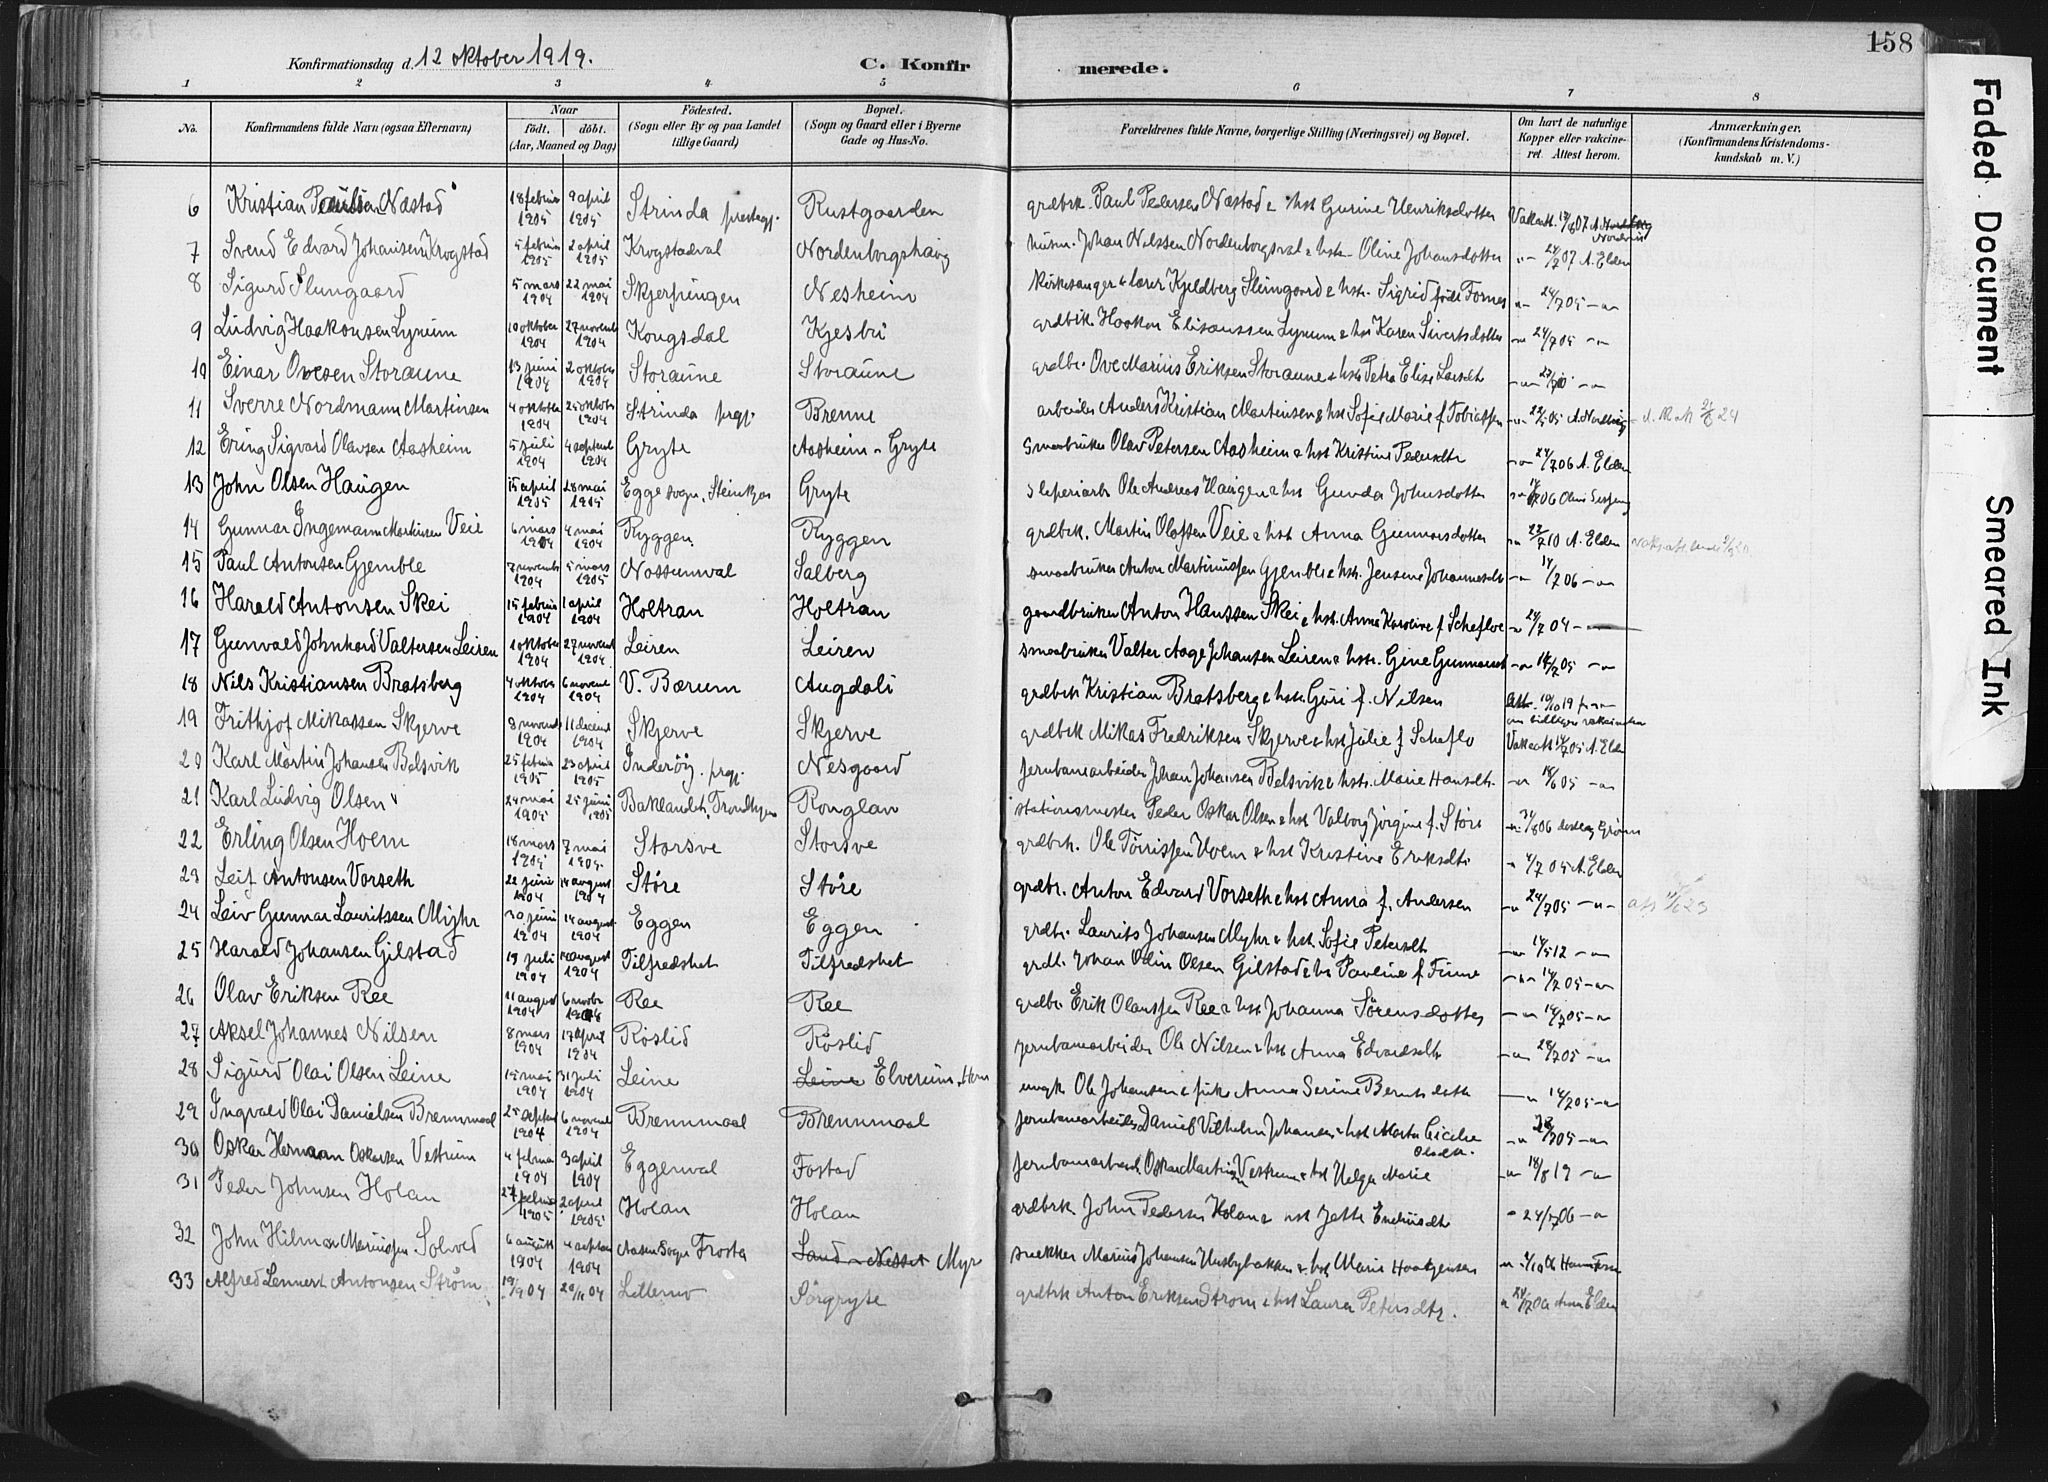 158
Konfirmationsdag d. 12 oktober 1919.
C. Konfirmerede.
1 2 3 4 5 6 7 8
No.
Konfirmandens fulde Navn (ogsaa Efternavn)
Naar
født. døbt.
(Aar, Maaned og Dag)
Fødested.
(Sogn eller By og paa Landet tillige Gaard)
Bopæl.
(Sogn og Gaard eller i Byerne Gade og Hus-No.
Forældrenes fulde Navne, borgerlige Stilling (Næringsvei) og Bopæl.
Om havt de naturlige Kopper eller vakcineret Attest herom.
Anmærkninger.
(Konfirmandens Kristendomskundskab m. V.)
6 Kristian Paulsen Næstad 18 februar 1905 9 april 1905 Strinda prestegj. Rustgaarden grdbrk. Paul Pedersen Næstad & hst Gurine Henriksdotter
7 Svend Edvard Johansen Krogstad 5 februar 1905 2 april 1905 Krogstadval Nordenborgshaug husm. Johan Nilssen Nordenborgsval & hst. Oline Johansdotter 24/7 07 A. Elden
8 Sigurd Slungaard 5 mars 1904 22 mai 1904 Skjerpingen Nesheim Kirkesanger & lærer Kjeldberg Slungaard & hst. Sigrid født Fornes 24/7 05
9 Ludvig Haakonsen Lynum 10 oktober 1904 27 novemb 1904 Kongsdal Kjesbu grdbrk. Haakon Elisæussen Lynum & hst Karen Sivertsdotter 24/7 05
10 Einar Ovesen Storaune 13 juni 1904 2 oktober 1904 Storaune Storaune grdbr. Ove Marius Eriksen Storaune & hst. Petra Elise Larsdt
11 Sverre Nordmann Martinsen 4 oktober 1904 25 oktob 1904 Strinda prgj. Brenne arbeider Anders Kristian Martinsen & hst Sofie Marie f. Tobiassen
12 Ering Sigvard Olavsen Aasheim 5 juli 1904 4 septemb 1904 Gryte Aasheim - Gryte Smaabruker Olav Petersen Aasheim & hst Kristine Pedersdtr 24/7 06 A. Elden
13 John Olsen Haugen 15 april 1905 28 mai 1905 Egge sogn, Steinkjer Gryte Sliperiarb. Ole Andreas Haugen & hst Gunda Johnsdotter
14 Gunnar Ingemann Martinsen Veie 6 mars 1904 4 mai 1904 Ryggen Ryggen grdbrk. Martin Olafsen Veie & hst Anna Gunnarsdotter 22/7 10 A. Elden
15 Paul Antonsen Gjemble 7 novemb 1904 5 mars 1905 Nossumval Salberg smaabruker Anton Martinussen Gjemble & hst. Jensine Johannesdt 14/7 06
16 Harald Antonsen Skei 15 februar 1904 1 april 1904 Holtran Holtran gaardbruker Anton Hanssen Skei & hst. Anna Karoline f. Schefloe 24/7 04
17 Gunvald Johnhard Valtersen Leiren 1 oktober 1904 27 novemb 1904 Leiren Leiren smaabruker Valter Aage Johansen Leiren & hstr. Gine Gunnarsdt 14/7 05
18 Nils Kristiansen Bratsberg 4 oktober 1904 6 novemb 1904 V. Bærum Augdali grdbrk Kristian Bratsberg & hst. Guri f. Nilsen
19 Frithjof Mikassen Skjerve 8 novemb 1904 11 decemb 1904 Skjerve Skjerve grdbrk Mikas Fredriksen Skjerve & hst Julie f. Scheflo
20 Karl Martin Johansen Balsvik 25 februar 1905 23 april 1905 Inderøy prgj. Nesgaard Jernbanearbeider Johan Johansen Balsvik & hst. Marie Hansdt.
21 Karl Ludvig Olsen 24 mai 1905 25 juni 1905 Baklandet, Trondhjem Ronglan stationsmester Peder Oskar Olsen & hst Valborg Jørgine f. Støre
22 Erling Olsen Hoem 18 mars 1905 7 mai 1905 Storsve Storsve grdbrk. Ole Tørrissen Hoem & hst Kristine Eriksdtr 4/7 05 A. Elden
23 Leif Antonsen Vorseth 22 juni 1904 14 august 1904 Støre Støre grdbr. Anton Edvard Vorseth & hst Anna f. Andersen 24/7 05
24 Leiv Gunnar Lauritssen Myhr 30 juni 1904 14 august 1904 Eggen Eggen grdbr. Laurits Johansen Myhr & hst. Sofie Petersdt
25 Harald Johansen Gilstad 19 juli 1904 14 august 1904 Tilfredshet Tilfredshet grdb. Johan Odin Olsen Gilstad & hst Pauline f. Finne 14/7 05
26 Olav Eriksen Ree 11 august 1904 6 novbr 1904 Ree Ree grdbr Erik Olaussen Ree & hst Johanna Sørensdotter 14/7 05
27 Aksel Johannes Nilsen 8 mars 1904 17 april 1904 Røslid Røslid jernbanearbeider Ole Nilsen & hst Anna Edvardsdtr 28/7 05
28 Sigurd Olai Olsen Leine 15 mai 1904 31 juli 1904 Leine Leine Elverum ungk. Ole Johansen & pike Anna Serine Berntsdotter 14/7 05
29 Ingvald Olai Danielsen Brennmoal 25 septemb 1904 6 novemb 1904 Brennmoal Brennmoal Jernbanearbeider Daniel Vilhelm Johansen & hst Marta Cicilie Olsdtr.
30 Oskar Herman Oskarsen Vestrum 4 februar 1904 3 april 1904 Eggenval Fostad Jernbanearbeid. Oskar Martin Vestrum & hst Helga Marie
31 Peder Johnsen Holan 27 februar 1905 2 april 1905 Holan Holan grdbrk. John Pedersen Holan & hst Jette 24/7 06
32 John Hilmar Mariussen Solved 6 august 1904 4 septemb 1904 Frosta Sand - Nesset Myr snekker Marius Johansen Husbybakken & hst Marie Haagensen
33 Alfred Lennert Antonsen Strøm 1904 20/11 04 Lillemo Sørgryte grdbrk Anton Eriksen Strøm & hst Laura Petersdtr.
Faded Document
Smeared Ink